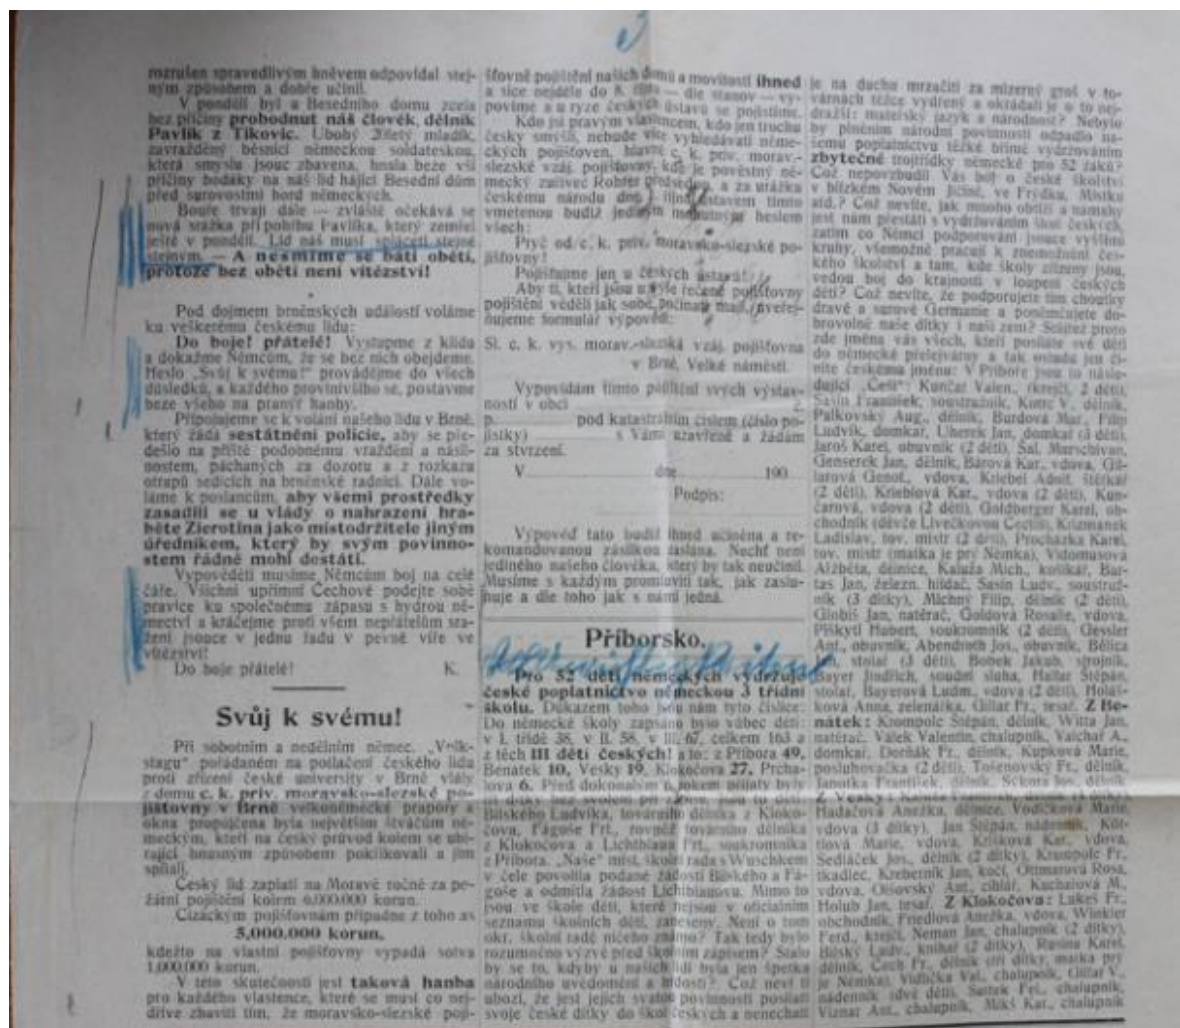 rozrušen spravedlivým hněvem odpovídal stej-
ným způsobem a dobře učinil.
V pondělí byl u Besedního domu zcela
bez příčiny probodnut náš člověk, dělník
Pavlík z Tikovic. Ubohý 20letý mladík,
zavražděný běsnící německou soldateskou,
která smyslů jsouc zbavena, hnala beze vší
příčiny bodáky na náš lid hájící Besední dům
před surovostmi hord německých.
Bouře trvají dále — zvláště očekává se
nová srážka při pohřbu Pavlíka, který zemřel
ještě v pondělí. Lid náš musí spláceti stejné
stejným. — A nesmíme se báti obětí,
protože bez obětí není vítězství!
Pod dojmem brněnských událostí voláme
ku veškerému českému lidu:
Do boje! přátelé! Vystupme z klidu
a dokažme Němcům, že se bez nich obejdeme.
Heslo „Svůj k svému!" provádějme do všech
důsledků, a každého provinivšího se, postavme
beze všeho na pranýř hanby.
Připojujeme se k volání našeho lidu v Brně,
který žádá sestátnění policie, aby se pře-
dešlo na příště podobnému vraždění a násil-
nostem, páchaných za dozoru a z rozkazu
otrapů sedících na brněnské radnici. Dále vo-
láme k poslancům, aby všemi prostředky
zasadili se u vlády o nahrazení hra-
běte Zierotina jako místodržitele jiným
úředníkem, který by svým povinno-
stem řádně mohl dostáti.
Vypověděti musíme Němcům boj na celé
čáře. Všichni upřímní Čechové podejte sobě
pravice ku společnému zápasu s hydrou ně-
mectví a kráčejme proti všem nepřátelům sra-
ženi jsouce v jednu řadu v pevné víře ve
vítězství!
Do boje přátelé! K.
Svůj k svému!
Při sobotním a nedělním němec. „Volk-
stagu" pořádaném na potlačení českého lidu
proti zřízení české university v Brně vlály
z domu c. k. priv. moravsko-slezské po-
jišťovny v Brně velkoněmecké prapory a
okna propůjčena byla největším štváčům ně-
meckým, kteří na český průvod kolem se ubí-
rající hnusným způsobem pokřikovali a jim
spílali.
Český lid zaplatí na Moravě ročně za po-
žární pojištění kolem 6,000.000 korun.
Cizáckým pojišťovnám připadne z toho as
5,000.000 korun,
kdežto na vlastní pojišťovny vypadá sotva
1,000.000 korun.
V této skutečnosti jest taková hanba
pro každého vlastence, které se musí co nej-
dříve zhaviti tím, že moravsko-slezské poji-
šťovně pojištění našich domů a movitostí ihned
a sice nejdéle do 8. října — dle stanov — vy-
povíme a u ryze českých ústavů se pojistíme.
Kdo jsi pravým vlastencem, kdo jen trochu
česky smýšlí, nebude více vyhledávati něme-
ckých pojišťoven, hlavně c. k. priv. morav.-
slezské vzáj. pojišťovny, kde je pověstný ně-
mecký zuřivec Rohrer předsedou, a za urážku
českému národu dne října ústavem tímto
vmetenou budiž jediným heslem
všech:
Pryč od c. k. priv. moravsko-slezské po-
jišťovny!
Pojišťujme jen u českých ústavů!
Aby ti, kteří jsou u výše řečené pojišťovny
pojištěni věděli jak sobě počínati mají, uveřej-
ňujeme formulář výpovědi:
Sl. c. k. vys. morav.-slezská vzáj. pojišťovna
v Brně, Velké náměstí.
Vypovídám tímto pojištění svých výstav-
ností v obci č.
p. pod katastrálním číslem (číslo po-
jistky) s Vámi uzavřené a žádám
za stvrzení.
V dne 190
Podpis:
Výpověď tato budiž ihned učiněna a re-
komandovanou zásilkou zaslána. Nechť není
jediného našeho člověka, který by tak neučinil.
Musíme s každým promluviti tak, jak zaslu-
huje a dle toho jak s námi jedná.
Příborsko.
Pro 52 dětí německých vydržuje
české poplatnictvo německou 3 třídní
školu. Důkazem toho jsou nám tyto číslice:
Do německé školy zapsáno bylo vůbec dětí:
v I. třídě 38, v II. 58, v III. 67, celkem 163 a
z těch III dětí českých! a to: z Příbora 49,
Benátek 10, Vesky 19, Klokočova 27, Prcha-
lova 6. Před dokonalým 6. rokem přijaty byly
tři dítky bez svolení při zápisu, jsou to děti:
Bilského Ludvíka, továrního dělníka z Kloko-
čova, Fágoše Frt., rovněž továrního dělníka
z Klokočova a Lichtblaua Frt., soukromníka
z Příbora. „Naše" míst. školní rada s Wuschkem
v čele povolila podané žádosti Bilského a Fá-
goše a odmítla žádost Lichtblauovu. Mimo to
jsou ve škole děti, které nejsou v oficielním
seznamu školních dětí, zaneseny. Není o tom
okr. školní radě ničeho známo? Tak tedy bylo
rozuměno výzvě před školním zápisem? Stalo
by se to, kdyby u našich lidí byla jen špetka
národního uvědomění a hrdosti? Což neví ti
ubozí, že jest jejich svatou povinností posílati
svoje české dítky do škol českých a nenechati
je na duchu mrzačiti za mizerný groš v to-
várnách těžce vydřený a okrádati je o to nej-
dražší: mateřský jazyk a národnost? Nebylo
by plněním národní povinnosti odpadlo na-
šemu poplatnictvu těžké břímě vydržováním
zbytečné trojtřídky německé pro 52 žáků?
Což nepovzbudil Vás boj o české školství
v blízkém Novém Jičíně, ve Frýdku, Místku
atd.? Což nevíte, jak mnoho obtíží a námahy
jest nám přestáti s vydržováním škol českých,
zatím co Němci podporováni jsouce vyššími
kruhy, všemožně pracují k znemožnění čes-
kého školství a tam, kde školy zřízeny jsou,
vedou boj do krajnosti v loupení českých
dětí? Což nevíte, že podporujete tím choutky
dravé a surové Germanie a poněmčujete do-
brovolně naše dítky i naši zem? Slyšte proto
zde jména vás všech, kteří posíláte své děti
do německé přelejvárny a tak ostudu jen či-
níte českému jménu: V Příboře jsou to násle-
dující „Češi": Kunčar Valen., (krejčí, 2 děti),
Sasín František, soustružník, Kunc V., dělník,
Palkovský Aug., dělník, Burdová Mar., Filip
Ludvík, domkář, Uherek Jan, domkář (3 děti),
Jaroš Karel, obuvník (2 děti), Sal. Marschivan,
Genserek Jan, dělník, Bárová Kar., vdova, Gil-
larová Genof., vdova, Kriebel Adolf, štěrkař
(2 děti), Krieblová Kar., vdova (2 děti), Kun-
čarová, vdova (2 děti), Goldberger Karel, ob-
chodník (děvče Livečkovou Cecilii), Krizmanek
Ladislav, tov. mistr (2 děti), Procházka Karel,
tov. mistr (matka je prý Němka), Vidomusová
Alžběta, dělnice, Kaluža Mich., košíkář, Bar-
tas Jan, železn. hlídač, Sasín Ludv., soustruž-
ník (3 dítky), Míchný Filip, dělník (2 děti),
Globiš Jan, natěrač, Goldová Rosalie, vdova,
Piskytl Hubert, soukromník (2 děti), Gessler
Ant., obuvník, Abendroth Jos., obuvník, Bělica
Jan, stolař (3 děti), Bobek Jakub, strojník,
Bayer Jindřich, soudní sluha, Hallar Štěpán,
stolař, Bayerová Ludm., vdova (2 děti), Holáš-
ková Anna, zelenářka, Gillar Fr., tesař. Z Be-
nátek: Krompolc Štěpán, dělník, Witta Jan,
natěrač, Válek Valentin, chalupník, Valchař A.,
domkář, Dorňák Fr., dělník, Kupková Marie,
posluhovačka (2 děti), Tošenovský Fr., dělník,
Janotka František, dělník, Sckora Jos., dělník.
Z Vesky:
Hadačová Anežka, dělnice, Vodičková Marie,
vdova (3 dítky), Jan Štěpán, nádeník, Köt-
tlová Marie, vdova, Kršková Kar., vdova,
Sedláček Jos., dělník (2 dítky), Krompolc Fr.,
tkadlec, Kreberník Jan, kočí, Ottmarová Rosa,
vdova, Olšovský Ant., cihlář, Kachalová M.,
Holub Jan, tesař. Z Klokočova: Lukeš Fr.,
obchodník, Friedlová Anežka, vdova, Winkler
Ferd., krejčí, Neman Jan, chalupník (2 dítky),
Bilský Ludv., knihař (2 dítky), Rusina Karel,
dělník, Čech Fr., dělník (tři dítky, matka prý
je Němka), Vidička Val., chalupník, Gillar V.,
nádenník (dvě děti), Šustek Fri., chalupník,
Viznar Ant., chalupník, Mikš Kar., chalupník